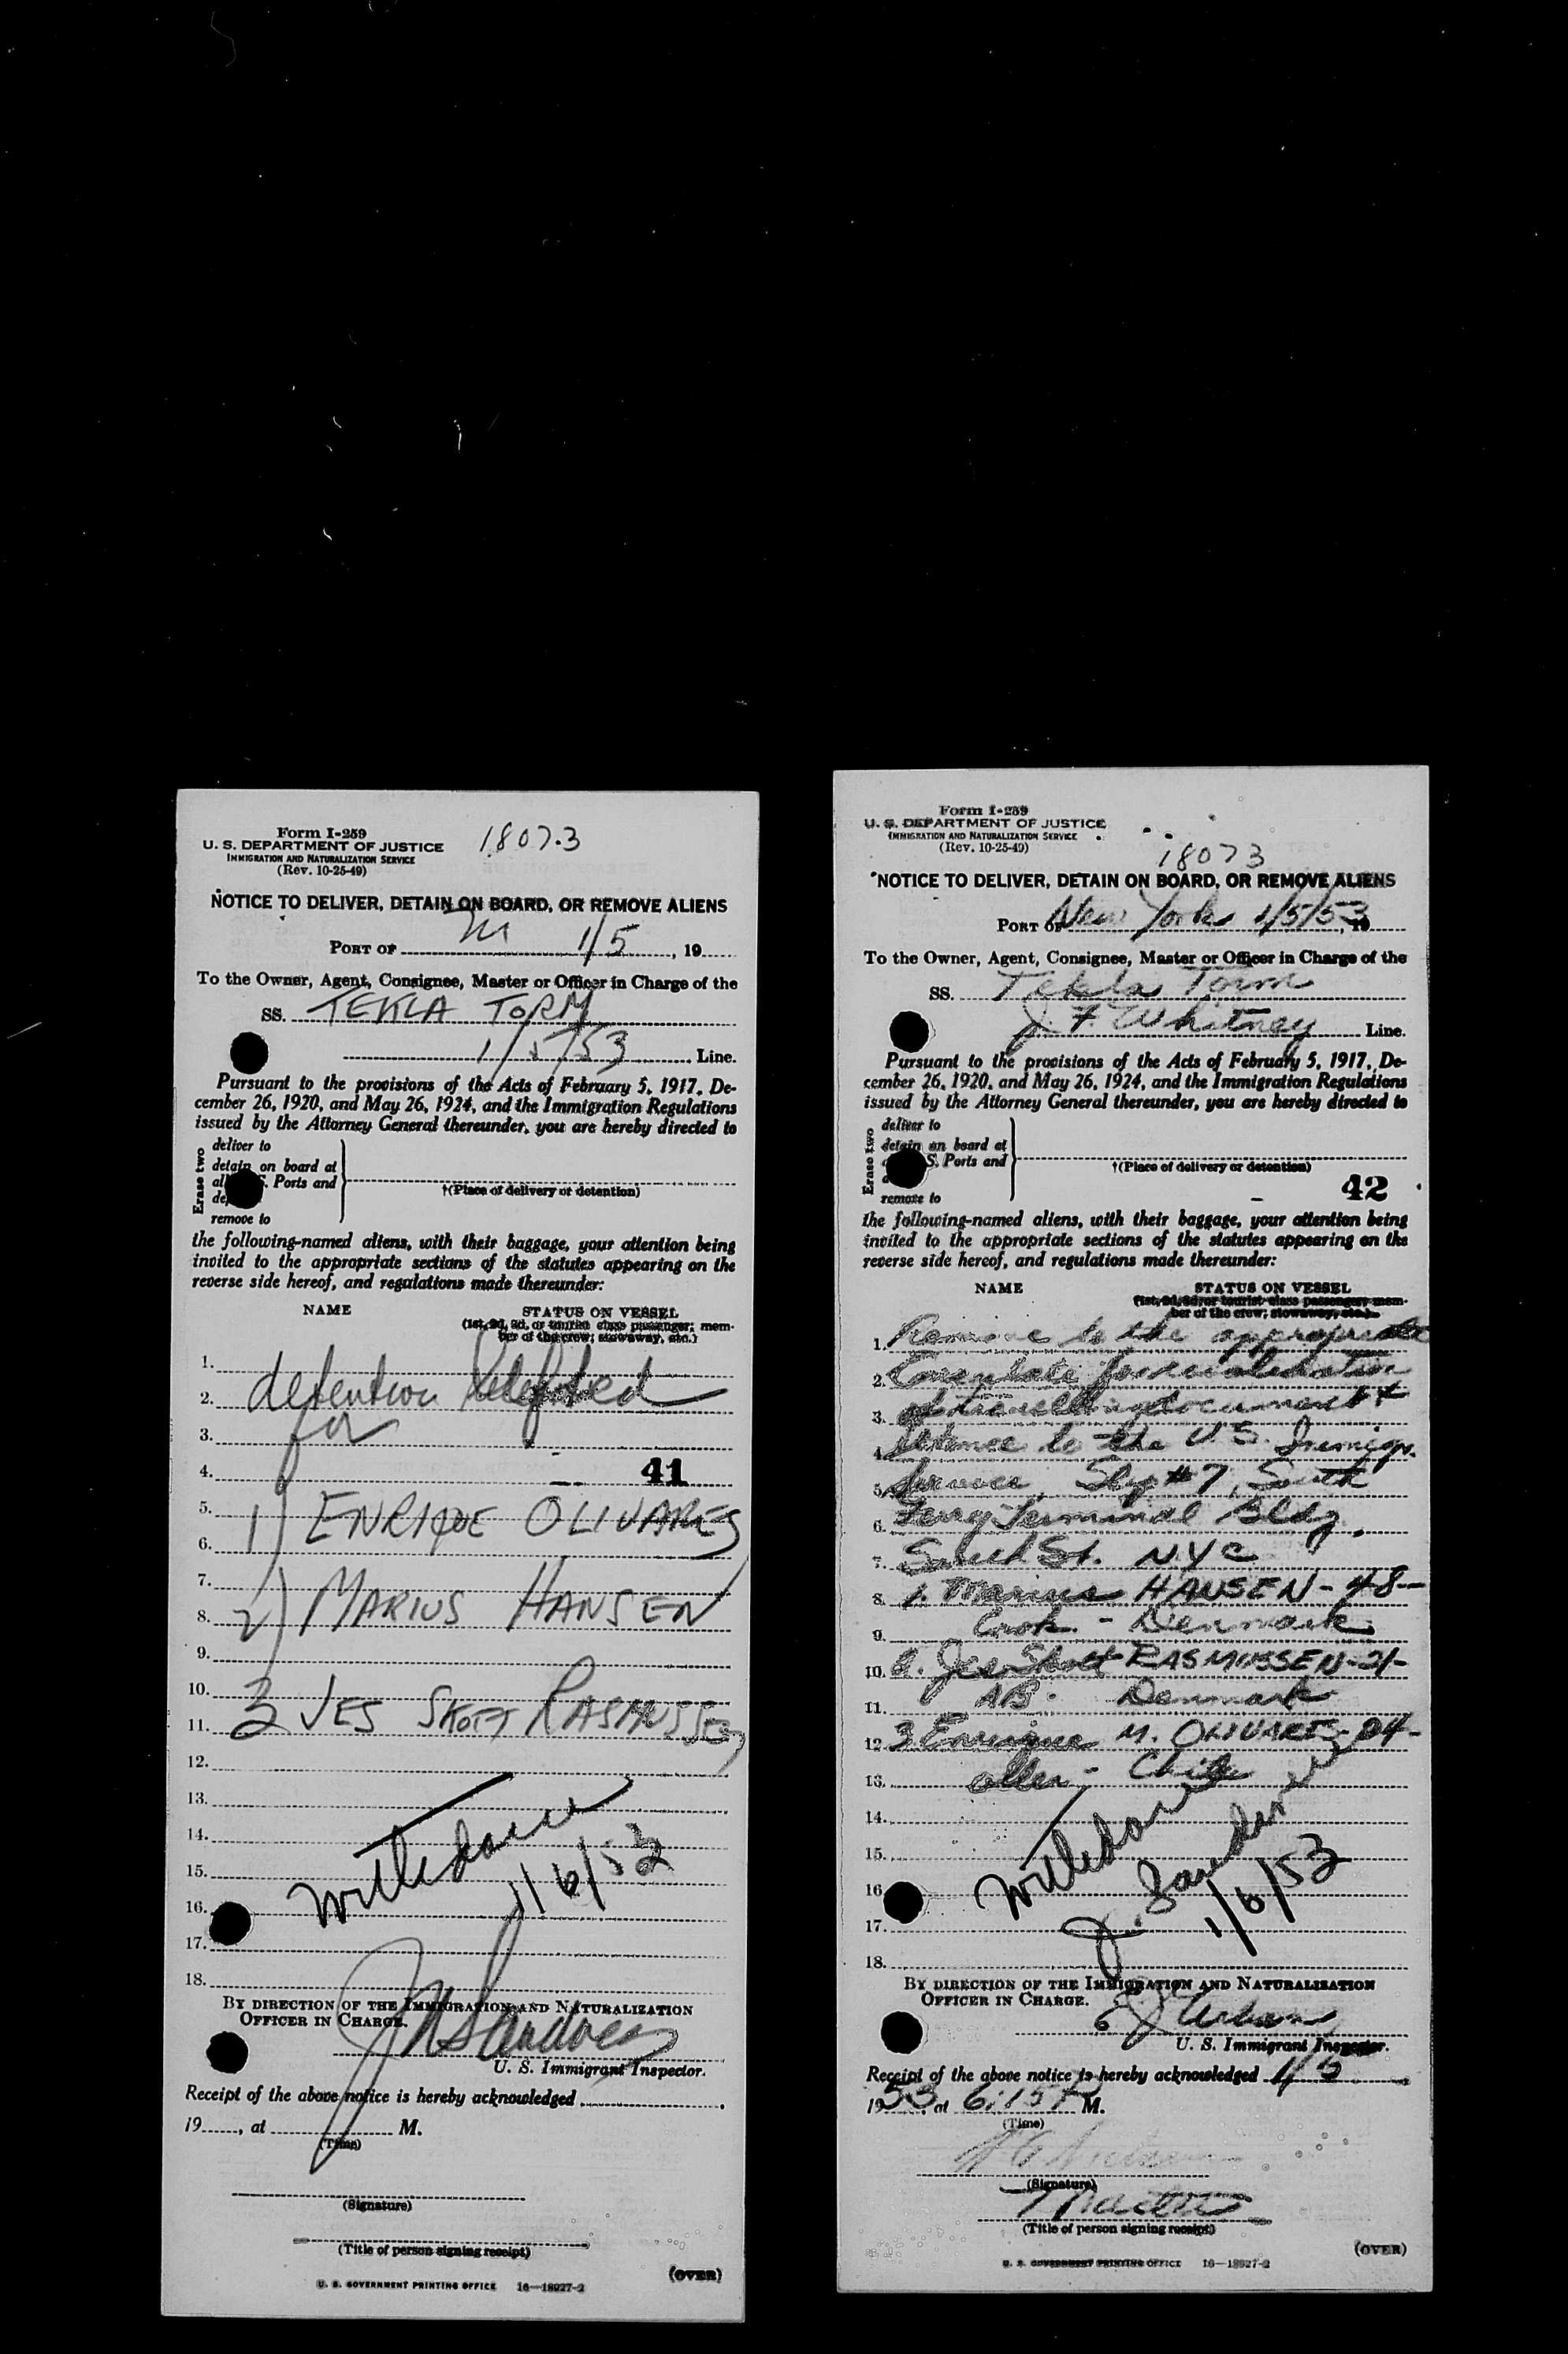 Form I-259
U. S. DEPARTMENT OF JUSTICE
IMMIGRATION AND NATURALIZATION SERVICE
(Rev. 10-25-49)
18073
NOTICE TO DELIVER, DETAIN ON BOARD, OR REMOVE ALIENS
PORT OF 1/5, 19
To the Owner, Agent, Consignee, Master or Officer in Charge of the
SS. TEKLA TORM
1/5/53 Line.
Pursuant to the provisions of the Acts of February 5, 1917, De-
cember 26, 1920, and May 26, 1924, and the Immigration Regulations
issued by the Attorney General thereunder, you are hereby directed to
Erase two
deliver to
detain on board at
Ports and
remove to
†(Place of delivery or detention)
the following-named aliens, with their baggage, your attention being
invited to the appropriate sections of the statutes appearing on the
reverse side hereof, and regulations made thereunder:
NAME STATUS ON VESSEL
(1st, 2d, 3d, or tourist class passenger; mem-
ber of the crew; stowaway, etc.)
1.
2. detention
3. for
4. 41
5. 1) ENRIQUE OLIVARES
6.
7.
8. 2) MARIUS HANSEN
9.
10.
11. 3 JES SKOTT RASMUSSEN
12.
13.
14.
15. Withdrawn
16. 1/6/53
17.
18.
BY DIRECTION OF THE IMMIGRATION AND NATURALIZATION
OFFICER IN CHARGE.
U. S. Immigrant Inspector.
Receipt of the above notice is hereby acknowledged
19, at M.
(Time)
(Signature)
(Title of person signing receipt)
(OVER)
U. S. GOVERNMENT PRINTING OFFICE 16—18927-2
Form I-259
U. S. DEPARTMENT OF JUSTICE
IMMIGRATION AND NATURALIZATION SERVICE
(Rev. 10-25-49)
18073
NOTICE TO DELIVER, DETAIN ON BOARD, OR REMOVE ALIENS
PORT OF New York 1/5/53, 19
To the Owner, Agent, Consignee, Master or Officer in Charge of the
SS. Tekla Torm
J. F. Whitney Line.
Pursuant to the provisions of the Acts of February 5, 1917, De-
cember 26, 1920, and May 26, 1924, and the Immigration Regulations
issued by the Attorney General thereunder, you are hereby directed to
Erase two
deliver to
detain on board at
S. Ports and
remove to
†(Place of delivery or detention)
42
the following-named aliens, with their baggage, your attention being
invited to the appropriate sections of the statutes appearing on the
reverse side hereof, and regulations made thereunder:
NAME STATUS ON VESSEL
(1st, 2d, 3d, or tourist class passenger; mem-
ber of the crew; stowaway, etc.)
1. Remove to the appropriate
2. Consulate for revalidation
3. of travelling document &
4. thence to the U.S. Immigr.
5. Service, Slip #7, South
6. Ferry Terminal Bldg.
7. South St. NYC
8. 1. Marius HANSEN - 48 -
9. Cook - Denmark
10. 2. Jes Skott RASMUSSEN - 21 -
11. AB - Denmark
12. 3. Enrique M. OLIVARES - 24 -
13. - Chile
14.
15. Withdrawn
16. 1/6/53
17.
18.
BY DIRECTION OF THE IMMIGRATION AND NATURALIZATION
OFFICER IN CHARGE.
U. S. Immigrant Inspector.
Receipt of the above notice is hereby acknowledged 1/5
1953, at 6:15 P M.
(Time)
(Signature)
(Title of person signing receipt)
(OVER)
U. S. GOVERNMENT PRINTING OFFICE 16—18927-2